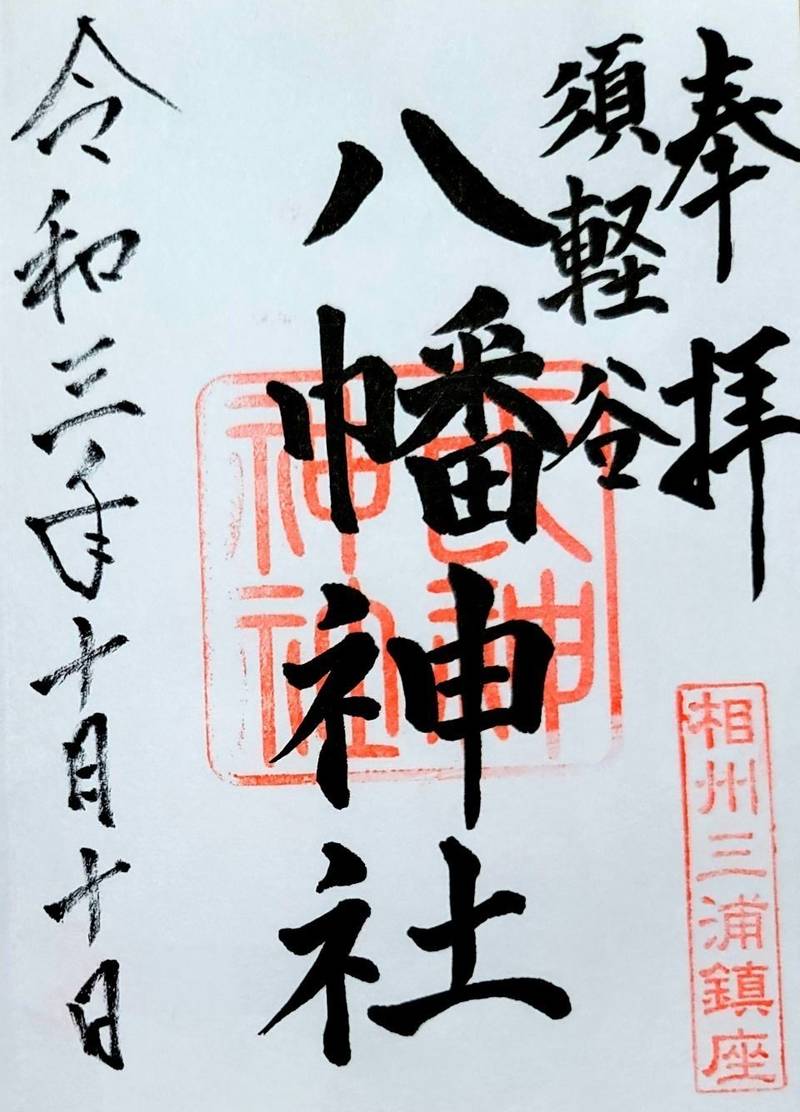 奉拝
相州三浦鎮座
須軽谷
八幡神社
令和三年十月十日